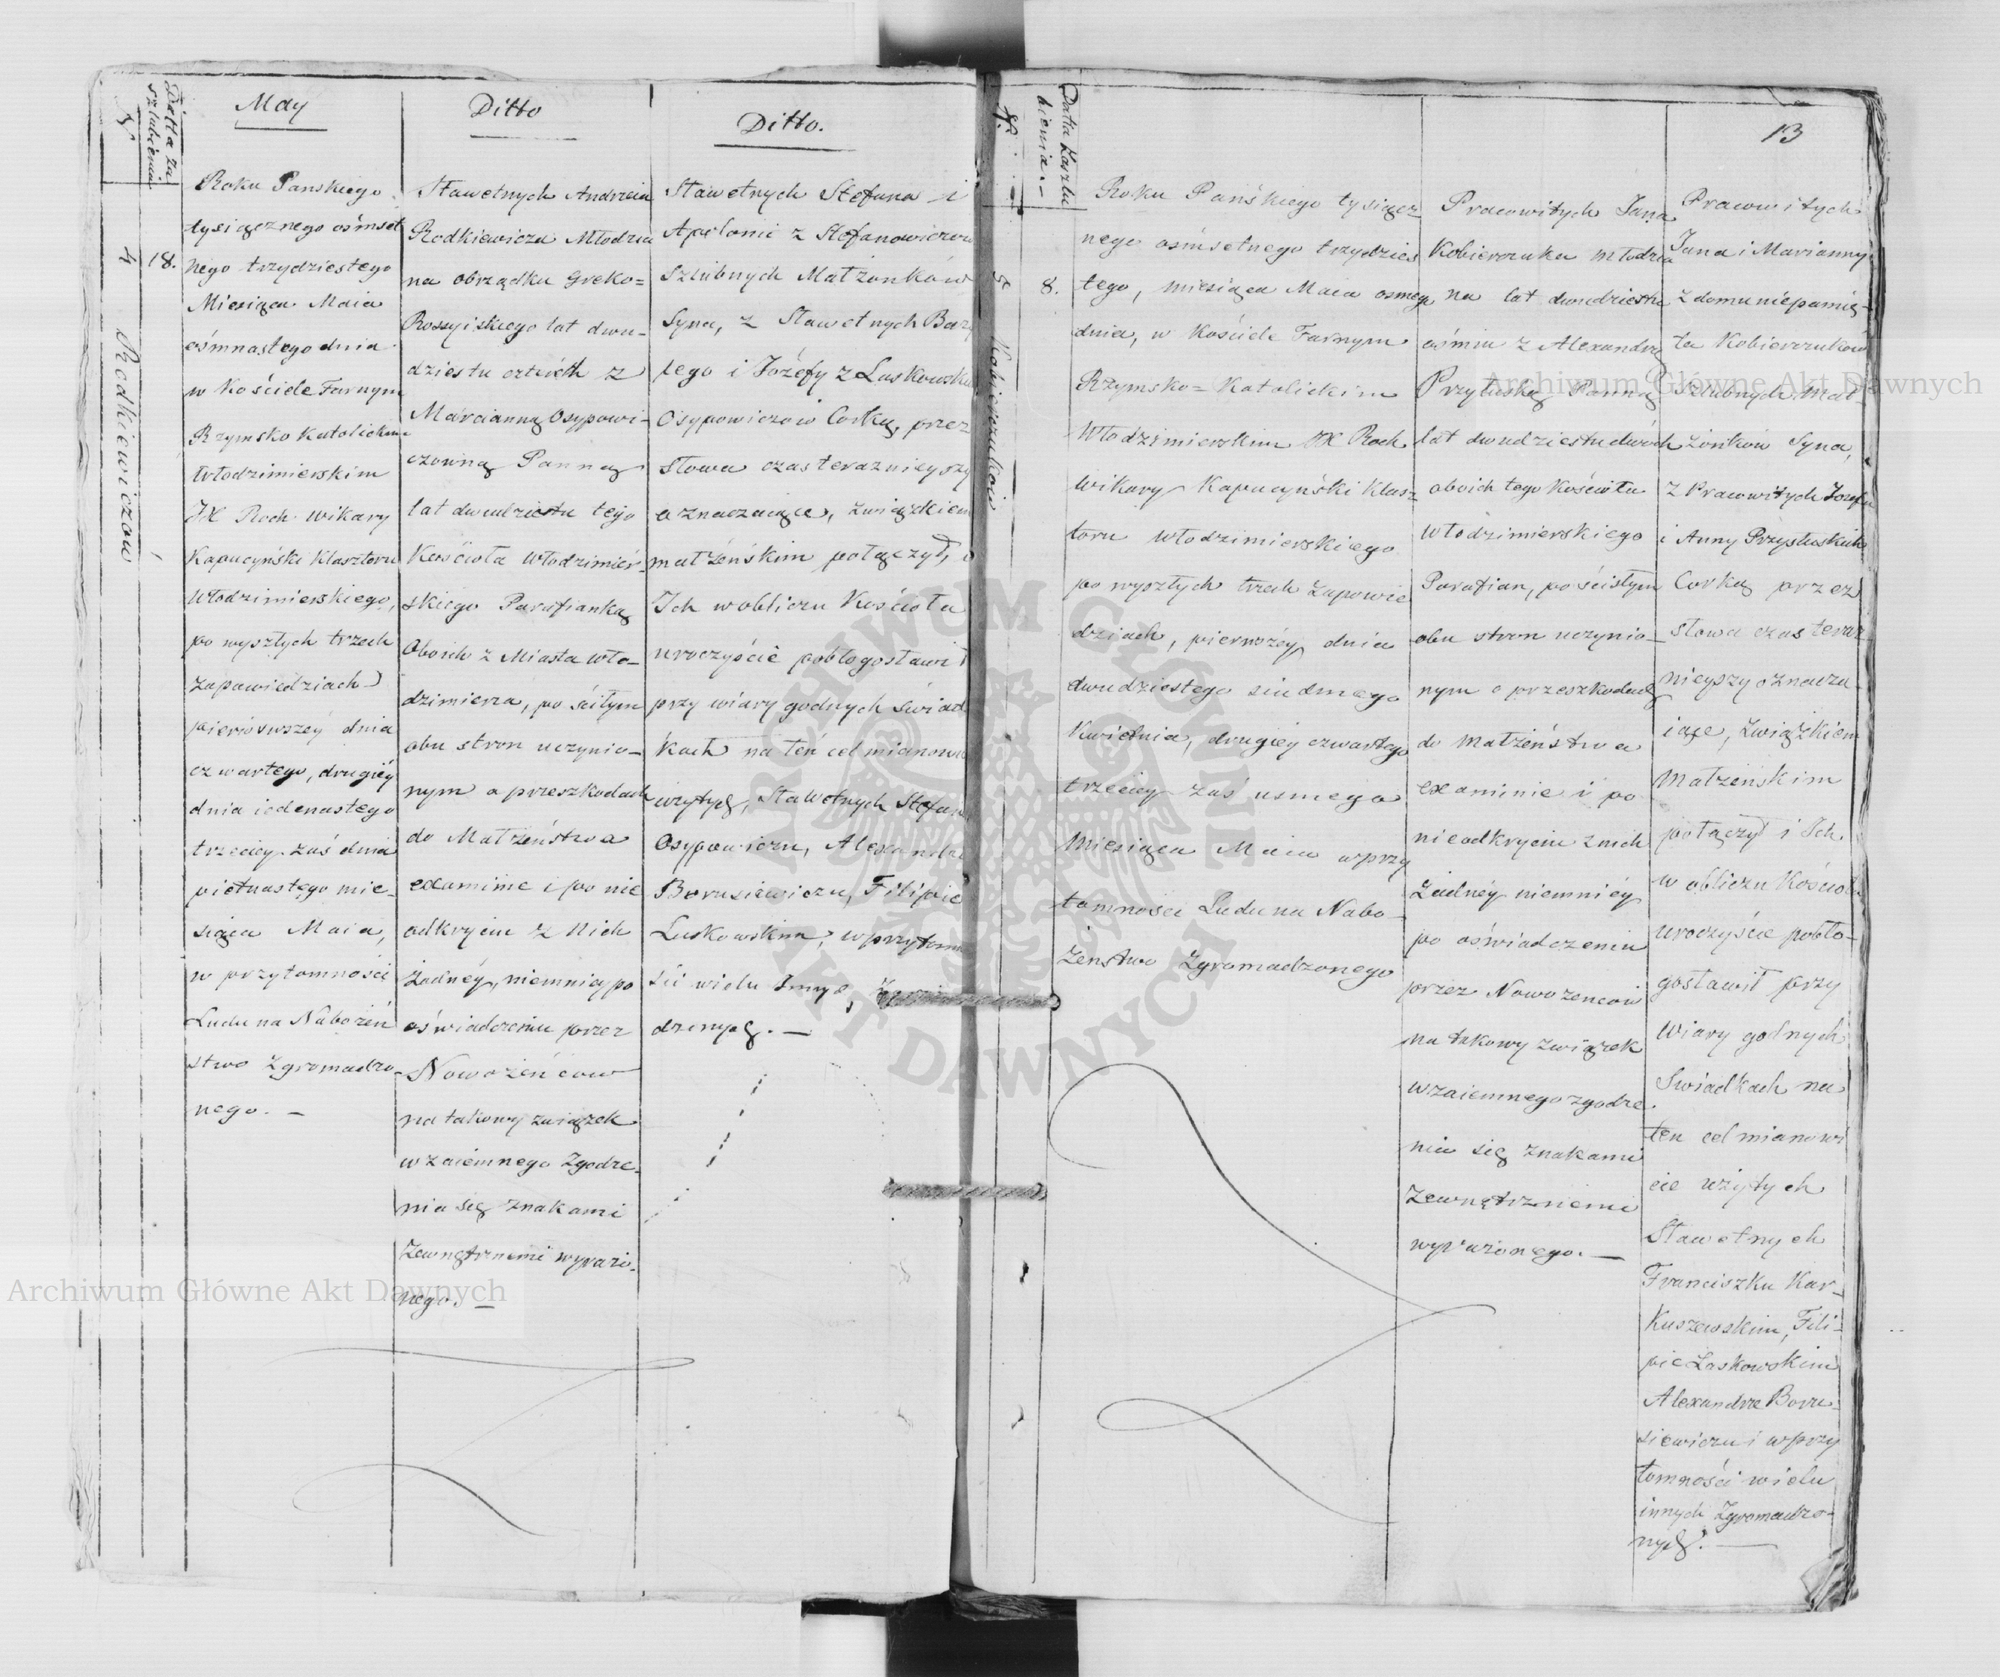 May
Ditto
Ditto.
Datta Za
szlubienia
N.
4
18.
Rodkiewiczow
Roku Panskiego
tysiącznego ośmset
nego trzydziestego
Miesiąca Maia
ośmnastego dnia
w Kościele Farnym
Rzymsko Katolickim
Włodzimierskim
JX Roch Wikary
Kapucyński Klasztoru
Włodzimierskiego,
po wyszłych trzech
zapowiedziach
pierwszey dnia
czwartego, drugiéy
dnia iedenastego
trzeciey zaś dnia
pietnastego mie-
siąca Maia,
w przytomności
Ludu na Nabożeń
stwo zgromadzo-
nego. —
Sławetnych Andrzeia
Rodkiewicza Młodzia
na obrządku Greko=
Rossyiskiego lat dwu-
dziestu czterech z
Marcianną Osypowi-
czowną Panną
lat dwudziestu tego
Kościoła Włodzimier-
skiego Parafianką
Oboich z Miasta Wło-
dzimierza, po ścitym
obu stron uczynio-
nym o przeszkodach
do Małżeństwa
examinie i po nie
odkryciu z nich
żadnéy, niemniey po
oświadczeniu przez
Nowożeńcow
na takowy związek
wzaiemnego zgodze-
nia się znakami
zewnętrznemi wyrażo-
nego. —
Sławetnych Stefana i
Apolonii z Stefanowiczow
Szlubnych Małżonków
Syna, z Sławetnych Bazy
lego i Józefy z Laskowskich
Osypowiczów Corką, przez
słowa czas teraznieyszy
oznaczaiące, związkiem
małżeńskim połączył, i
Ich w obliczu Kościoła
uroczyście pobłogosławił
przy wiary godnych Swiad
kach na ten cel mianowicie
wzytych, Sławetnych Stefanie
Osypowiczu, Alexandrze
Borusiewiczu, Filipie
Laskowskim, w przytomno
ści wielu Innych, zgroma
dzonych. —
N.
Datta Zaszlu
bienia. —
13
5
8.
Kobierzukow
Roku Pańskiego tysiącz
nego ośmsetnego trzydzies
tego, miesiąca Maia osmego
dnia, w Kościele Farnym
Rzymsko=Katolickim
Włodzimierskim JX Roch
Wikary Kapucyński Klasz=
toru Włodzimierskiego
po wyszłych trzech zapowie
dziach, pierwszéy dnia
dwudziestego siudmego
Kwietnia, drugiéy czwartego
trzeciey zaś usmego
Miesiąca Maia w przy
tomności Ludu na Nabo-
żeństwo zgromadzonego
Pracowitych Jana
Kobierzuka młodzia
na lat dwudziestu
ośmiu z Alexandrą
Przyłuską Panną
lat dwudziestu dwóch
oboich tego Kościoła
Włodzimierskiego
Parafian, po ścisłym
obu stron uczynio-
nym o przeszkodach
do Małżeństwa
examinie i po
nieodkryciu z nich
żadnéy niemniéy
po oświadczeniu
przez Nowożencow
na takowy związek
wzaiemnego zgodze-
nia się znakami
zewnętrznemi
wyrażonego. —
Pracowitych
Jana i Marianny
z domu niepamię-
ta Kobierzukow
Szlubnych Mał-
żonków Syna,
z Pracowitych Jozefa
i Anny Przyłuskich
Corką przez
słowa czas teraz-
nieyszy oznacza-
iące, związkiem
Małżeńskim
połączył i Ich
w obliczu Kościoła
uroczyście pobło-
gosławił przy
Wiary godnych
Swiadkach na
ten cel mianowi
cie użytych
Sławetnych
Franciszku Kar-
Kuszewskim, Fili-
pie Laskowskim
Alexandrze Boru-
siewiczu i w przy
tomności wielu
innych zgromadzo-
nych. —
Archiwum Główne Akt Dawnych
Archiwum Główne Akt Dawnych
ARCHIWUM GŁÓWNE
AKT DAWNYCH